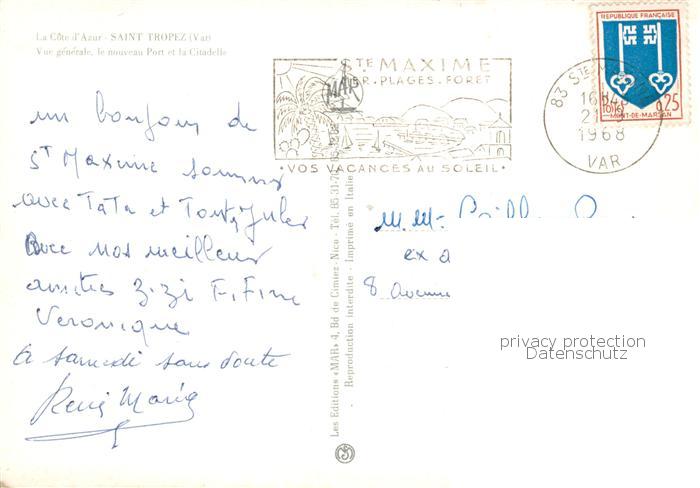 La Côte d'Azur - SAINT TROPEZ (Var)
Vue générale, le nouveau Port et la Citadelle
un bonjour de
St Maxime sommes
avec Tata et Tonton Jules
Avec nos meilleurs
amitiés Zizi Fifine
Veronique
a samedi sans doute
René Maria
Les Editions «MAR» 4, Bd de Cimiez - Nice - Tél. 85-31-7
Reproduction interdite - Imprimé en Italie
MAR
STE MAXIME
MER. PLAGES. FORET
• VOS VACANCES AU SOLEIL •
83 STE M
16H4
21
1968
VAR
REPUBLIQUE FRANÇAISE
POSTES
0,25
MONT-DE-MARSAN
M. Mme
ex a
8 avenue
privacy protection
Datenschutz